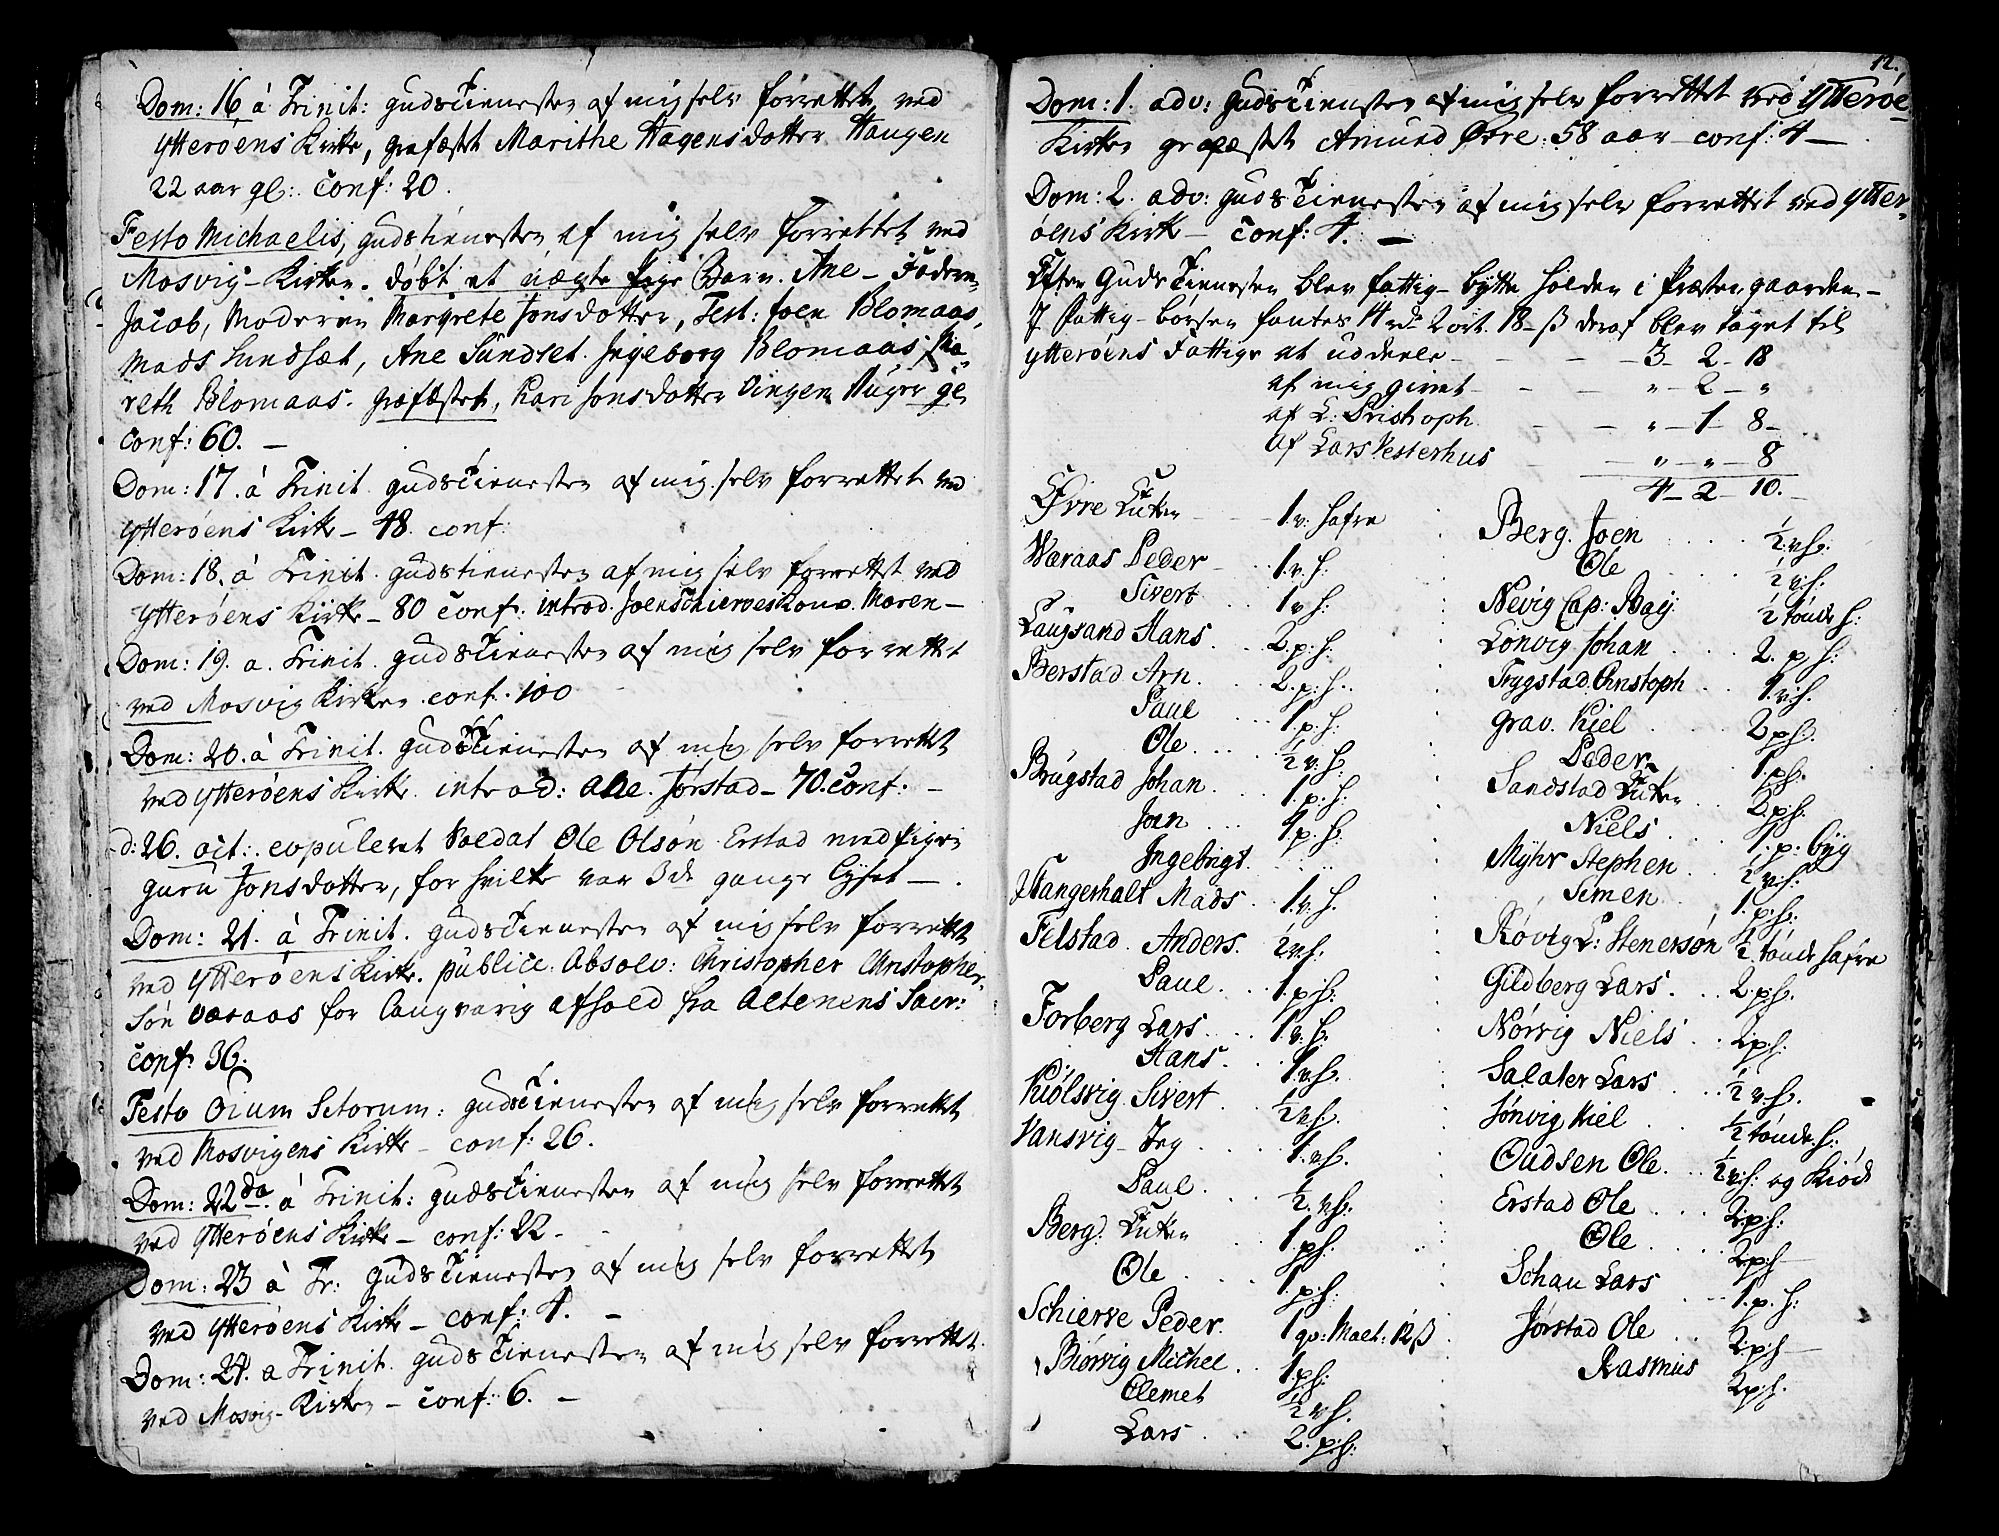 Dom: 16 à Trinit: gudstienesten af mig selv forrettet ved
Ytterøens Kirke, græfæstet Marithe Hagensdotter Haugen
22 aar gl: conf: 20.
Festo Michaelis, gudstienesten af mig selv forrettet ved
Mosvig-Kirken. døbt et uægte pige Barn. Ane – Faderen
Jacob, Moderen Margrete Jonsdotter, Test: Joen Blomaas,
Mads Sundsæt, Ane Sundset. Ingeborg Blomaas. Ma-
reth Blomaas. græfæstet, Kari Jonsdotter Vingen 4 uger gl.
conf: 60. –
Dom: 17. à Trinit. gudstienesten af mig selv forrettet ved
Ytterøens Kirke – 48. conf:
Dom: 18. à Trinit. gudstienesten af mig selv forrettet ved
Ytterøens Kirke – 80 conf: introd. Joen Schierves Kone Maren –
Dom: 19. a. Trinit. gudstienesten af mig selv forrettet
ved Mosvig Kirken conf. 100
Dom: 20. à Trinit. gudstienesten af mig selv forrettet
ved Ytterøens Kirke. introd: Ane. Jørstad – 70. conf. –
d: 26. oct: copuleret Soldat Ole Olsøn Erstad med pigen
guru Jonsdotter, for hvilke var 3de gange lyset –.
Dom: 21. à Trinit. gudstienesten af mig selv forrettet
ved Ytterøens Kirke. publice. Absolv: Christopher Christopher-
søn Varaas for langvarig afhold fra Altenens Sacr:
conf: 36.
Festo Oium Sctorum: gudstienesten af mig selv forrettet
ved Mosvigens Kirke – conf: 26.
Dom: 22da à Trinit: gudstienesten af mig selv forrettet
ved Ytterøens Kirke – conf: 22 –
Dom: 23 à Tr: gudstienesten af mig selv forrettet
ved Ytterøens Kirke – conf: 4. –
Dom: 24. a Trinit. gudstienesten af mig selv forrettet
ved Mosvig-Kirken – conf: 6. –
12.
Dom: 1. adv: gudstienesten af mig selv forrettet ved Ytterøe
Kirken græfæstet Amund Øvre: 58 aar – conf: 4 –
Dom: 2. adv: gudstienesten af mig selv forrettet ved Ytter-
øens Kirke – conf: 4. –
Efter Gudstienesten blev fattig-bytte holden i Præstegaarden –
I Fattig-børsen fantes 14 rdr 2 ort. 18 – ß deraf blev taget til
Ytterøens Fattige at uddeele – – – 3 – 2 – 18
af mig givet – – – „ – 2 – „
af L: Christoph – – „ – 1 – 8 –
af Lars Vesterhus – – „ – „ – 8
4 – 2 – 10. –
Øvre Enken – 1. v: hafre
Waraas Peder – 1. v. h:
Sivert . . 1 v h:
Laugsand Hans . . 2. p: h:
Berstad Arn. . . 2. p: h.
Paul . . 1. p. h:
Ole . . ½ v. h:
Brugstad Johan . . 1. p. h:
Joen . . 1. p. h:
Ingebrigt . . . .
Hangerhalt Mads . . 1. v. h.
Felstad. Anders. ½ v. h.
Paul . . 1. p: h:
Forberg Lars . . 1. v. h.
Hans . . 1. v. h.
Kiølsvig Sivert . . ½ v. h.
Vansvig – Jeg . . 1. v. h.
Paul . . ½. v. h:
Berg: Enken . . 1. p. h:
Ole . . 1. p: h:
Schierve Peder. 1 qv: Malt: 12 ß
Biørvig Michel . . 1. p. h:
Clemet ½ v. h.
Lars . . 2. p: h:
Berg. Joen . . . . ½. v. h:
Ole . . ½ v. h.
Nevig Cap: Bay. ½ tønde h:
Lønvig Johan . . 2. p h:
Trygstad. Christoph . . 1. v. h.
Grav. Kiel . . 2 p h.
Peder . . 1. p h.
Sandstad Enken . . 2. p h.
Niels . . 1. p: byg
Myhr Stephen . . ½ v. h:
Simen . . 1. p: h:
Røvig L: Stenersøn ½ tønde hafre
Gildberg Lars . . 2. p h.
Nørvig Niels . . 2 p: h:
Salater Lars . . ½ v. h.
Sønvig Kiel . . ½ tønde h:
Oudsen Ole . . ½ v: h: og Kiød
Erstad Ole . . 2. p: h:
Ole . . 2 p h –
Schau Lars . . 1. p. h:
Jørstad Ole . . 2. p h –
Rasmus 2. p: h.